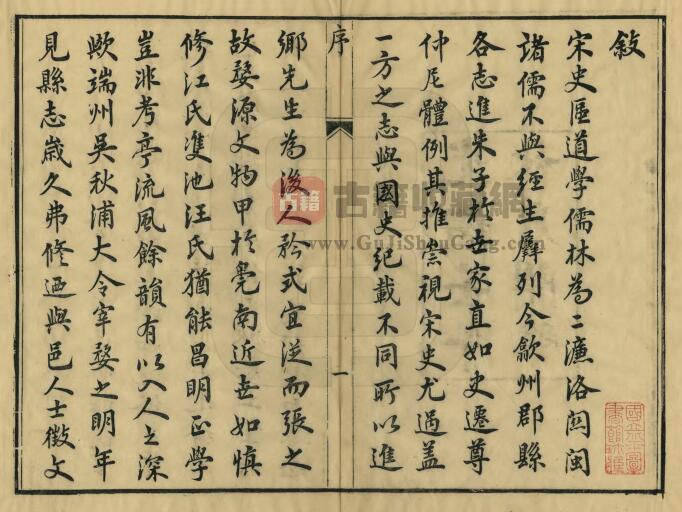 敍
宋史區道學儒林為二濂洛関閩
諸儒不與經生羼列今歙州郡縣
各志進朱子於世家直如史遷尊
仲尼體例其推崇視宋史尤過盖
一方之志與國史紀載不同所以進
序
一
鄉先生為後人矜式宜從而張之
故婺源文物甲於皖南近世如慎
修江氏雙池汪氏猶能昌明正學
豈非考亭流風餘韻有以入人之深
歟端州吳秋浦大令宰婺之明年
見縣志歲久弗修迺與邑人士徵文
古籍
古籍收藏網
www.GuJiShouCang.com